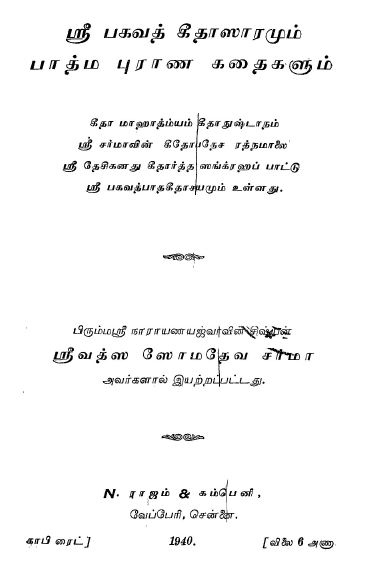 ஸ்ரீ பகவத் கீதாஸாரமும்
பாத்ம புராண கதைகளும்
கீதா மாஹாத்ம்யம் கீதாநுஷ்டாநம்
ஸ்ரீ சர்மாவின் கீதோபதேச ரத்நமாலை
ஸ்ரீ தேசிகனது கீதார்த்த ஸங்க்ரஹப் பாட்டு
ஸ்ரீ பகவத்பாதகீதாசயமும் உள்ளது.
பிரும்மஸ்ரீ நாராயணயஜ்வர்வின் சிஷ்யன்
ஸ்ரீவத்ஸ ஸோமதேவ சர்மா
அவர்களால் இயற்றப்பட்டது.
N. ராஜம் & கம்பெனி,
வேப்பேரி, சென்னை.
காபி ரைட்] 1940. [விலை 6 அணா